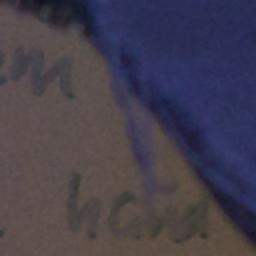 em
hand